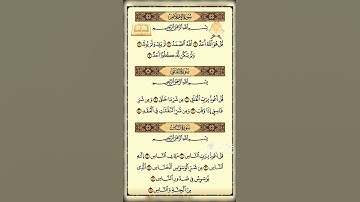 سورة الإخلاص
بسم الله الرحمن الرحيم
قُلْ هُوَ اللَّهُ أَحَدٌ ۝ اللَّهُ الصَّمَدُ ۝ لَمْ يَلِدْ وَلَمْ يُولَدْ ۝
وَلَمْ يَكُن لَّهُ كُفُوًا أَحَدٌ ۝
سورة الفلق
بسم الله الرحمن الرحيم
قُلْ أَعُوذُ بِرَبِّ الْفَلَقِ ۝ مِن شَرِّ مَا خَلَقَ ۝ وَمِن شَرِّ
غَاسِقٍ إِذَا وَقَبَ ۝ وَمِن شَرِّ النَّفَّاثَاتِ فِي الْعُقَدِ ۝
سورة الناس
بسم الله الرحمن الرحيم
قُلْ أَعُوذُ بِرَبِّ النَّاسِ ۝ مَلِكِ النَّاسِ ۝ إِلَٰهِ
النَّاسِ ۝ مِن شَرِّ الْوَسْوَاسِ الْخَنَّاسِ ۝ الَّذِي
يُوَسْوِسُ فِي صُدُورِ النَّاسِ ۝
مِنَ الْجِنَّةِ وَالنَّاسِ ۝